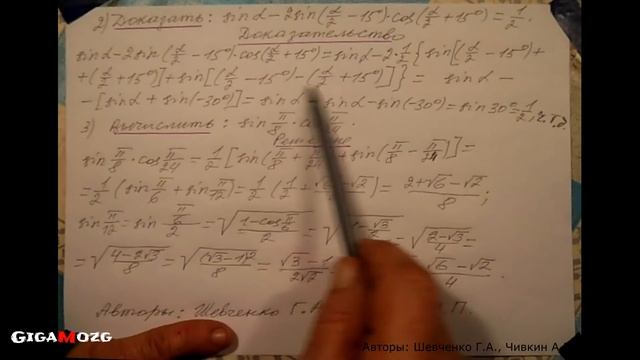 2) Доказать: sinα-2sin(α/2-15°)·cos(α/2+15°)=1/2.
Доказательство
sinα-2sin(α/2-15°)·cos(α/2+15°)=sinα-2·1/2{sin[(α/2-15°)+
+(α/2+15°)]+sin[(α/2-15°)-(α/2+15°)]}= sinα-
-[sinα+sin(-30°)]=sinα-sinα-sin(-30°)=sin30°=1/2, ч.т.д.
3) Вычислить: sin π/8·cos π/24.
Решение
sin π/8·cos π/24=1/2[sin(π/8+π/24)+sin(π/8-π/24)]=
=1/2(sin π/6+sin π/12)=1/2(1/2+√6-√2)=(2+√6-√2)/8;
sin π/12=sin (π/6)/2=√((1-cos π/6)/2)=√((1-√3/2)=√((2-√3)/4)=
=√((4-2√3)/8)=√((√3-1)²/8)=(√3-1)/(2√2) (√6-√2)/4.
Авторы: Шевченко Г.А. П.
GIGAMOZG
Авторы: Шевченко Г.А., Чивкин А.